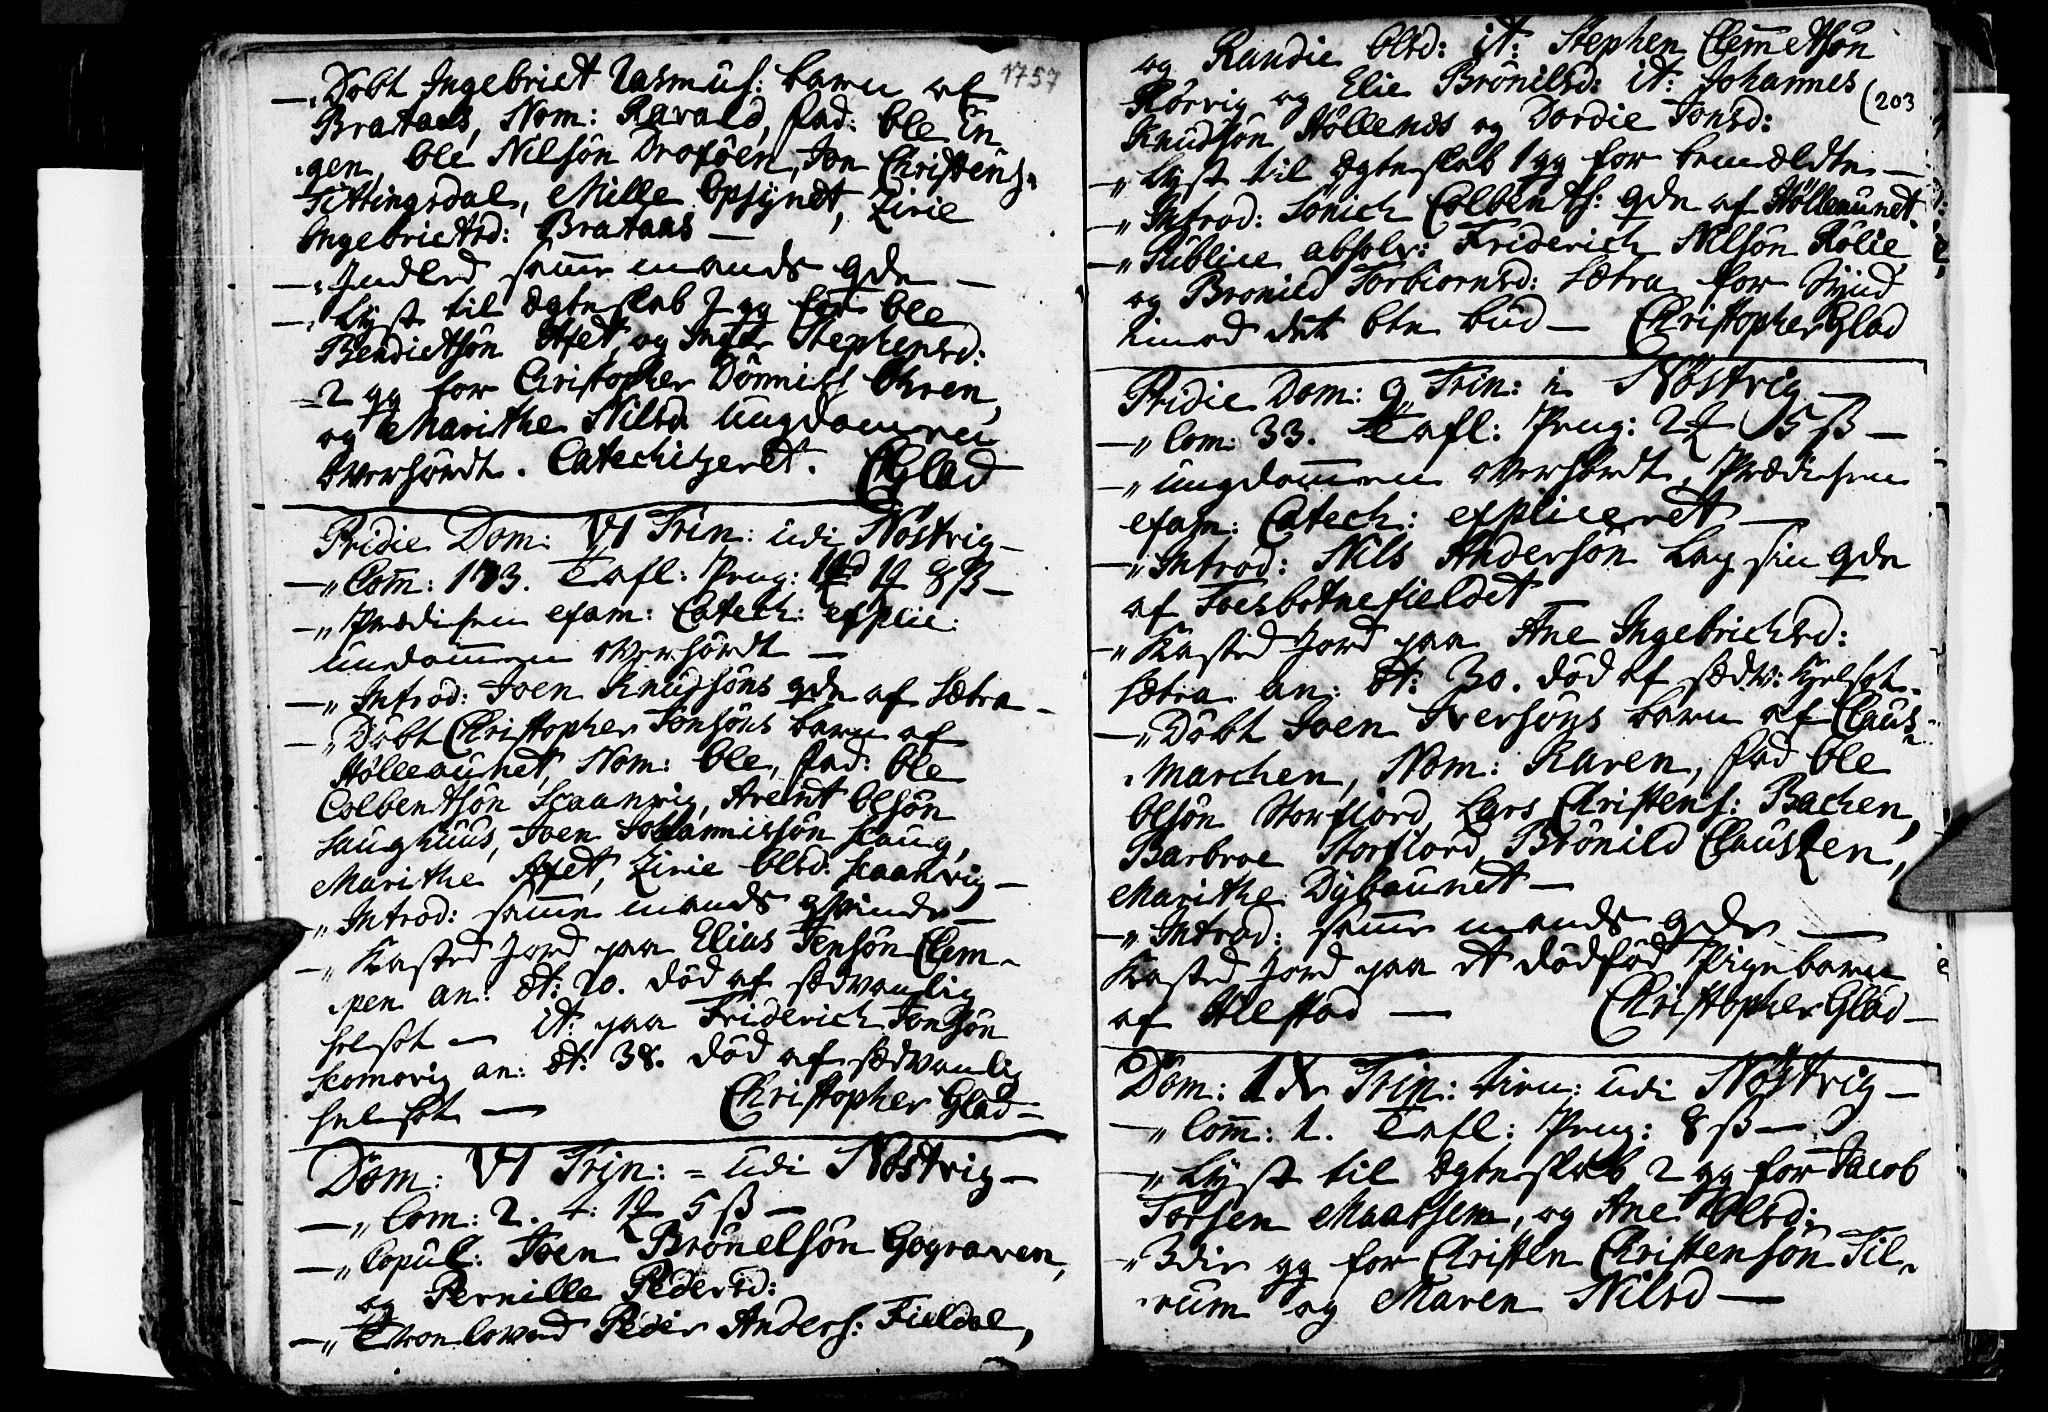 1757
—„ Döbt Ingebriet Rasmus: barn af
Brataas, Nom: Ravald, fad: Ole Un-
gen, Ole Nilsön Droföen, Jon Christens:
Tittingsdal, Mille Opsynet, Zirie
Ingebrietsd: Brataas —
—„ Indled samme mands qde —
—„ Lyst til Ægteskab 3 gg for Ole
Bendictsön Afet og Inger Stephensd:
= 2 gg for Christopher Dönnies Ohren,
og Marithe Nilsd. Ungdommen
overhördt. Catechizeret. CGlad
Pridie Dom: VI Trin: udi Nöstvig —
—„ Com: 173. Tafl: Peng: 8 ß —
—„ Prædiken exam: Catech: explic:
undommen overhördt —
—„ Introd: Joen Knudsöns qde af Sætra —
—„ Döbt Christopher Jonsöns barn af
Hölleaunet, Nom: Ole, fad: Ole
Colbentsön Scaanvig, Arent Olsön
Haughuus, Joen Johannissön Haug,
Marithe Afet, Zirie Olsd: Scaanvig —
—„ Introd: samme mands qvinde —
—„ Kasted Jord paa Elias Jensön Clem-
pen an: æt: 20. död af sædvanlig
helsot — it: paa Friderich Jonsön
Scomovig an: æt: 38. död af sædvanlig
helsot — Christopher Glad —
Dom: VI Trin: = udi Nöstvig —
—„ Com: 2. t: 5 ß —
—„ Copul: Joen Brönelsön Gograven,
og Pernille Pedersd:
—„ Troloved Peder Anders: Fieldal,
og Randie Olsd: it: Stephen Clemmetsön
Rörvig og Elie Brönilsd: it: Johannes
(203
Knudsön Höllenes og Dordie Jonsd:
—„ Lyst til Ægteskab 1 gg for bemældte —
—„ Introd: Sönich Colbents: qde af Hölleaunet
—„ Publice absolv: Friderich Nilsön Rölie
og Bronild Torbiornsd: Sætra for Synd
imod det 6te bud — Christopher Glad
Pridie Dom: 9 Trin: in Nöstvig —
—„ Com: 33. Tafl: Peng: 2 5 ß —
—„ ungdommen overhördt, Prædiken
exam: Catech: expliceret —
—„ Introd: Nils Andersön Lay sin qde
af Toesbotnefieldet
—„ Kasted Jord paa Ane Ingebrichsd:
Sætra an: æt: 30. död af sædv: helsot.
—„ Döbt Joen Iversöns barn af Claus-
marchen, Nom: Karen, fad Ole
Olsön Storfiord, Lars Christens: Bachen,
Barbroe Storfiord, Brönild Clauszen,
Marithe Dybaunet —
—„ Introd: samme mands qde —
Kasted Jord paa et dödföd Pigebarn
af Alestad — Christopher Glad —
Dom: Trin: udi Nöstvig —
—„ Comm: 1. Tafl: Peng: 8 ß —
—„ Lyst til Ægteskab 2 gg for Jacob
Torsen Maahsen, og Ane Olsd:
—„ 3die gg for Christen Christensön Til-
rum og Maren Nilsd —